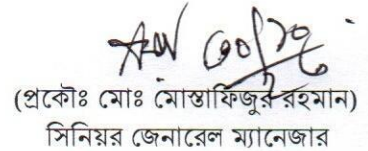 (প্রকৌঃ মোঃ মোস্তাফিজুর রহমান)
সিনিয়র জেনারেল ম্যানেজার